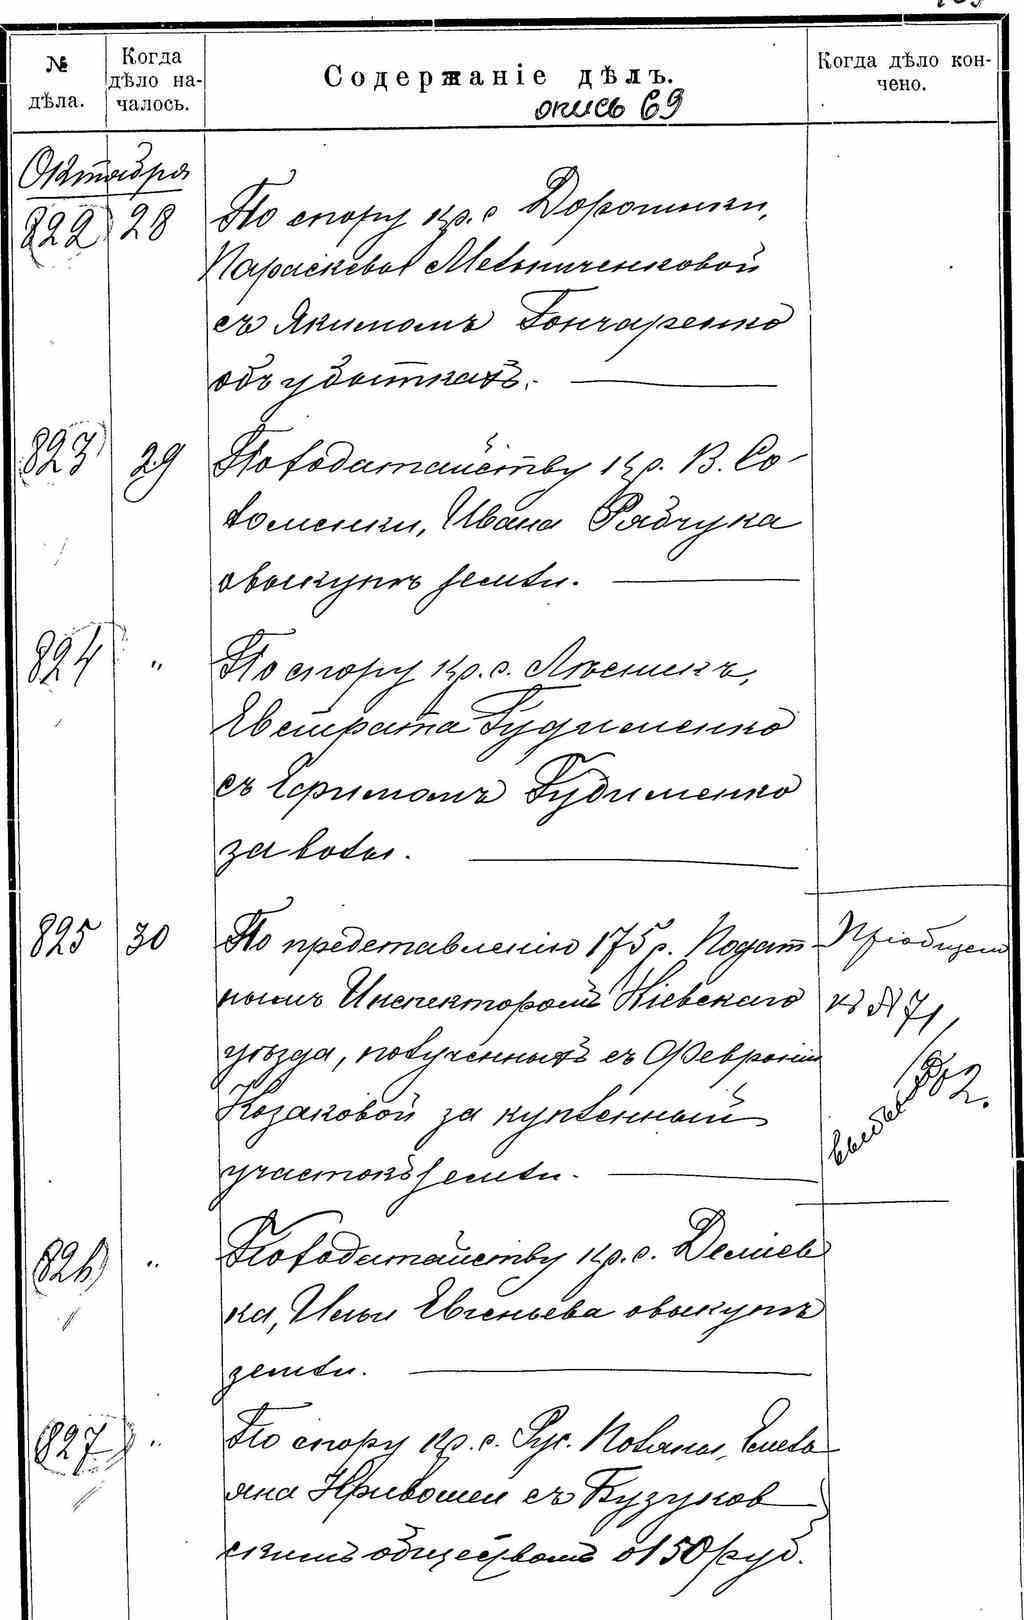 № дѣла.
Когда дѣло на-
чалось.
Содержаніе дѣлъ.
Когда дѣло кон-
чено.
опись 69
Октября
822 28 По спору кр. с Дорошики,
Параскевы Мельниченковой
съ Якимомъ Гончаренко
объ убыткахъ. —
823 29 По ходатайству кр. В. Со-
ломенки, Ивана Рябчука
о выкупѣ земли. —
824 " По спору кр. с.
Евстрата Гудименко
съ Ефимомъ Гудименко
за волы. —
825 30 По представленію 175 р. Подат
нымъ Инспекторомъ Кіевскаго
уѣзда, полученныхъ съ Февроніи
Козаковой за купленный
участокъ земли. —
Пріобщено
къ № 71
1882.
826 " По ходатайству кр. с. Деміев
ка, Ильи Евгеньева о выкупѣ
земли. —
827 " По спору кр. с. Рус. Поляны, Емель
яна Кривошеи съ Бузуков
скимъ обществомъ о 150 руб.